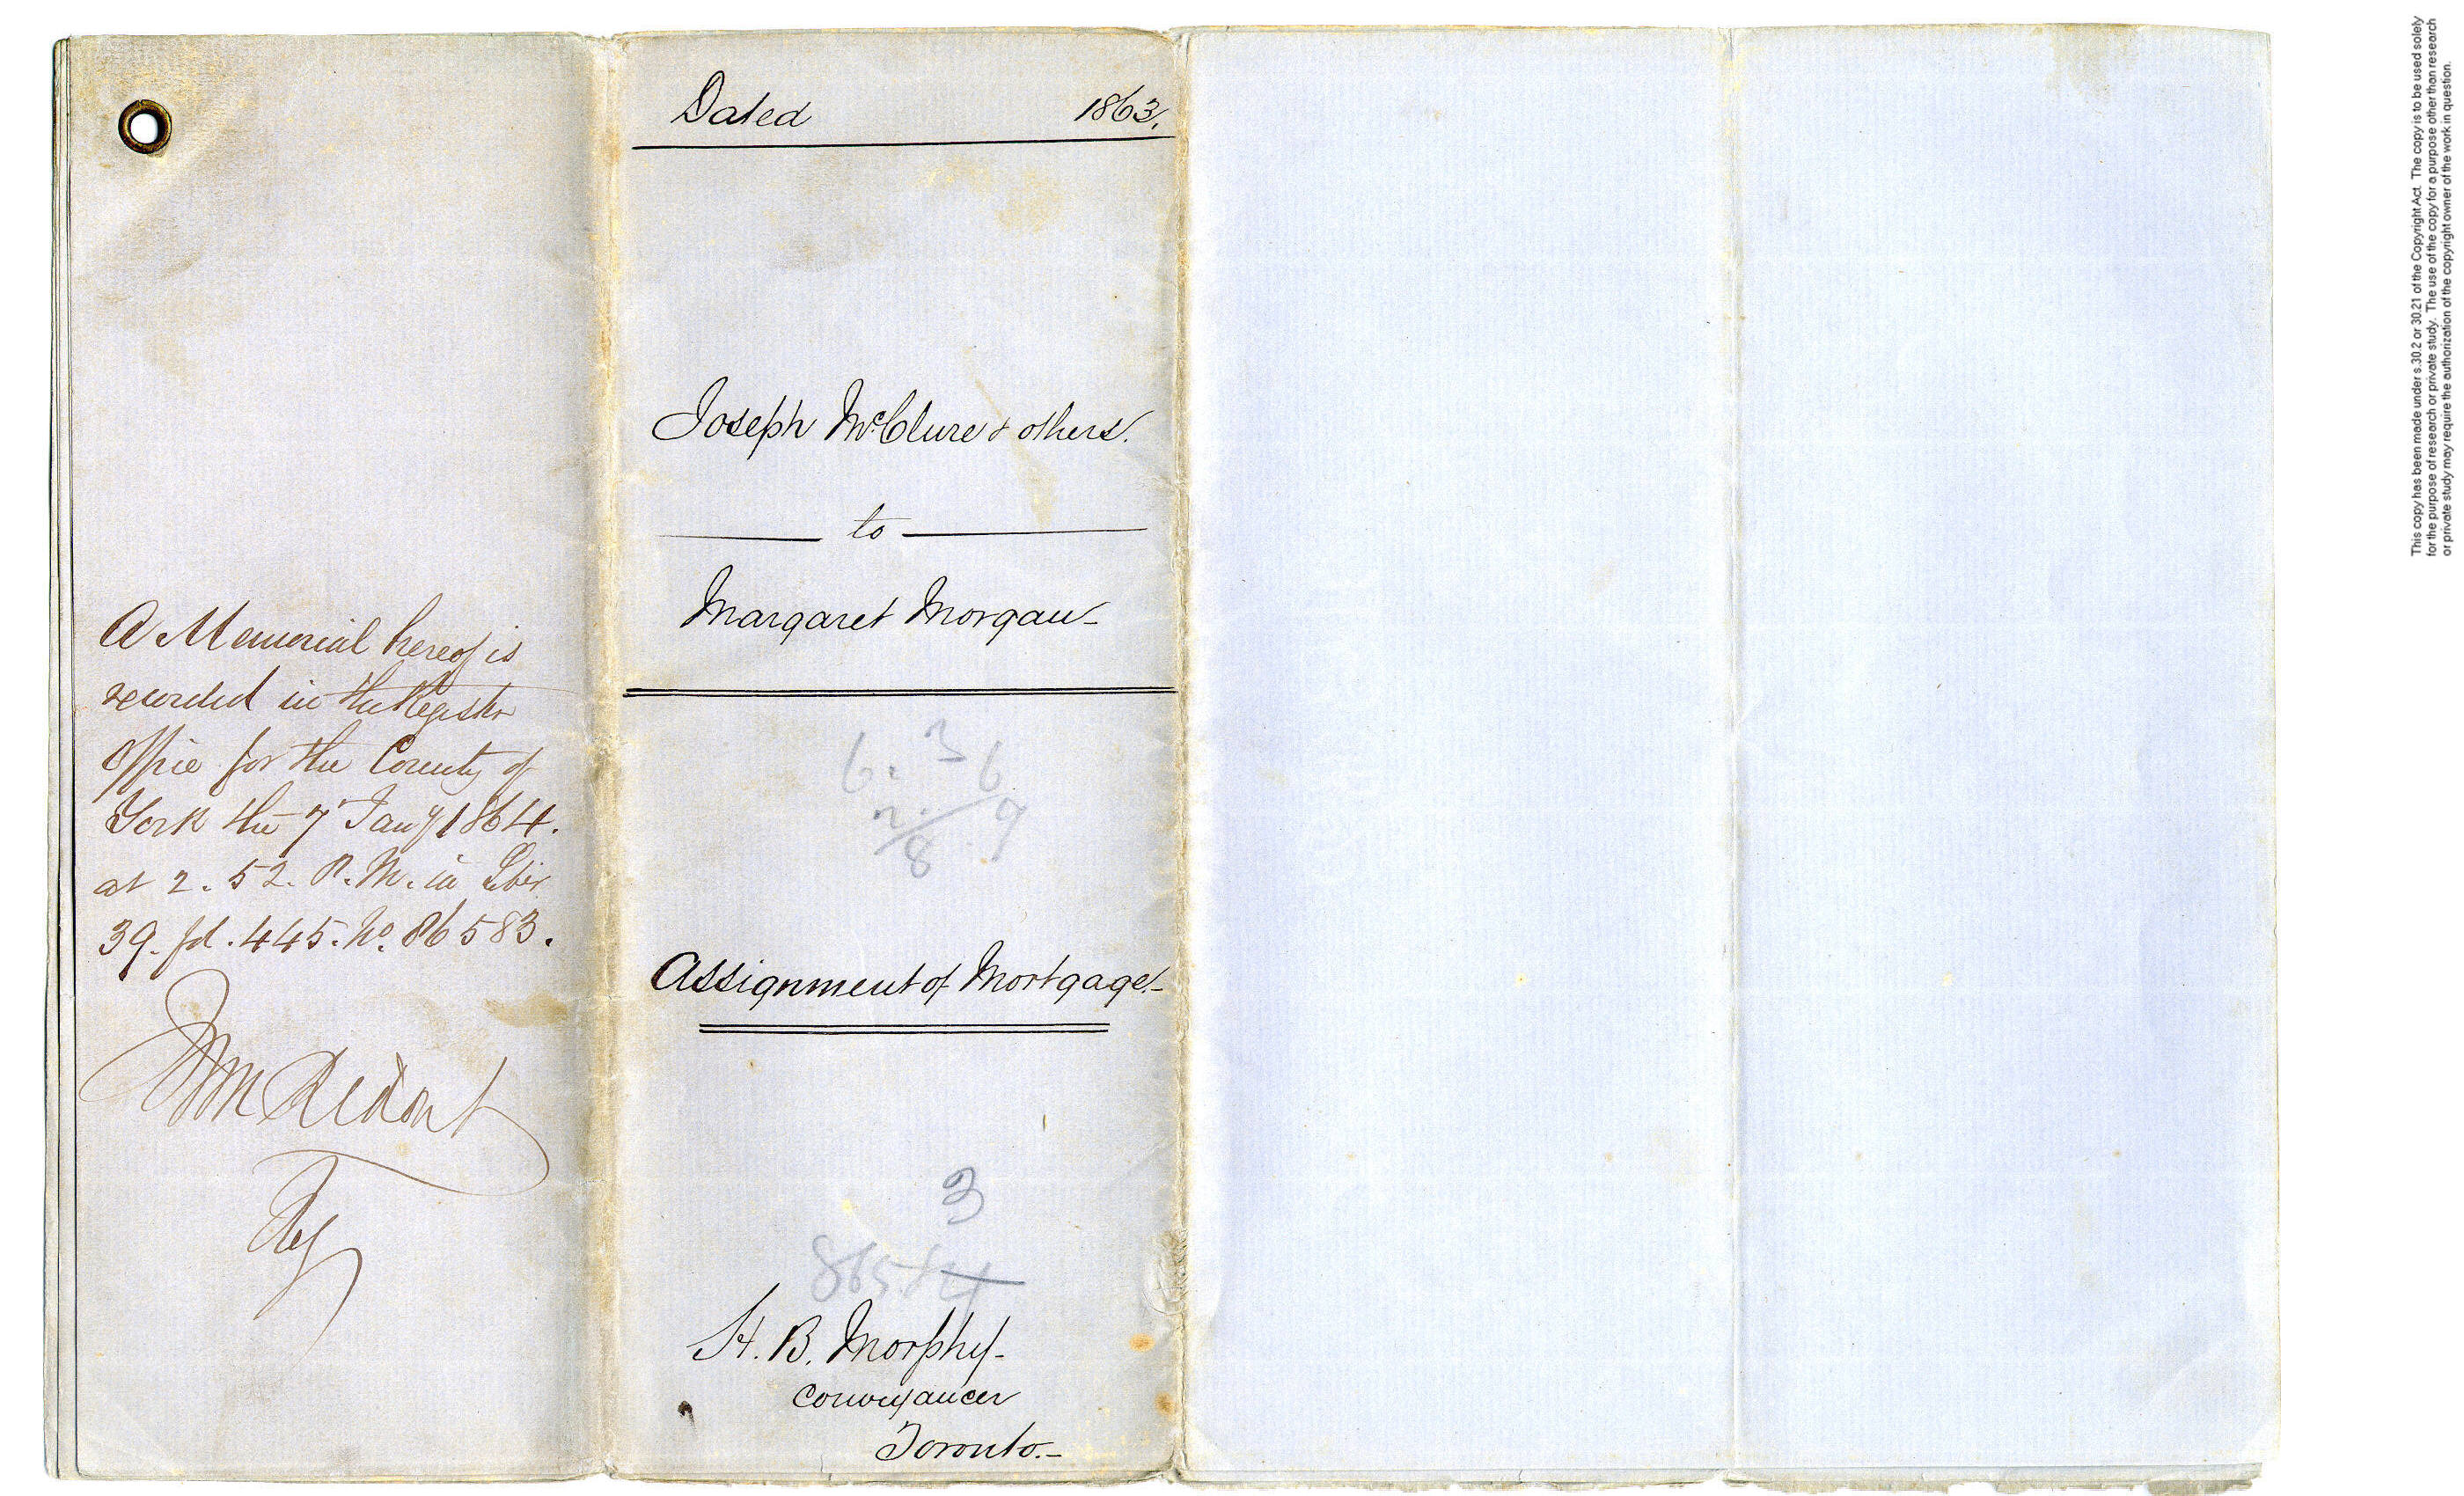 A Memorial hereof is
recorded in the Register
Office for the County of
York the 7 Jany 1864.
at 2.52. P.M. in Liber
39. fol. 445. No. 86583.
Wm Ridout
Reg
Dated 1863.
Joseph McClure & others.
to
Margaret Morgan
6. 3 6
2. 9
8
Assignment of Mortgage.
3
H. B. Morphy
Conveyancer
Toronto.
This copy has been made under s.30.2 or 30.21 of the Copyright Act. The copy is to be used solely
for the purpose of research or private study. The use of the copy for a purpose other than research
or private study may require the authorization of the copyright owner of the work in question.